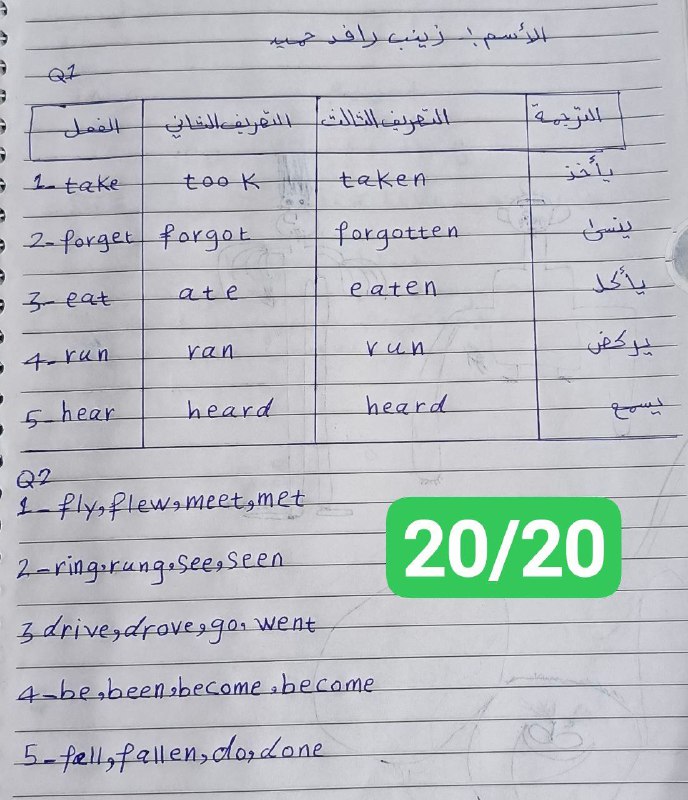 الأسم: زينب رافد حميد
Q1
الفعل التصريف الثاني التصريف الثالث الترجمة
1- take took taken يأخذ
2- forget forgot forgotten ينسى
3- eat ate eaten يأكل
4- run ran run يركض
5- hear heard heard يسمع
Q2
1- fly, flew, meet, met
2- ring, rung, see, seen
20/20
3 drive, drove, go, went
4- be, been, become, become
5- fall, fallen, do, done